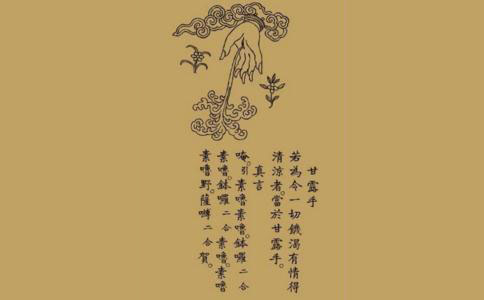 甘露手
若為令一切饑渴有情得
清涼者。當於甘露手。
真言
唵。引素嚕素嚕。鉢囉二合
素嚕。鉢囉二合素嚕。素嚕
素嚕野。薩嚩二合賀。